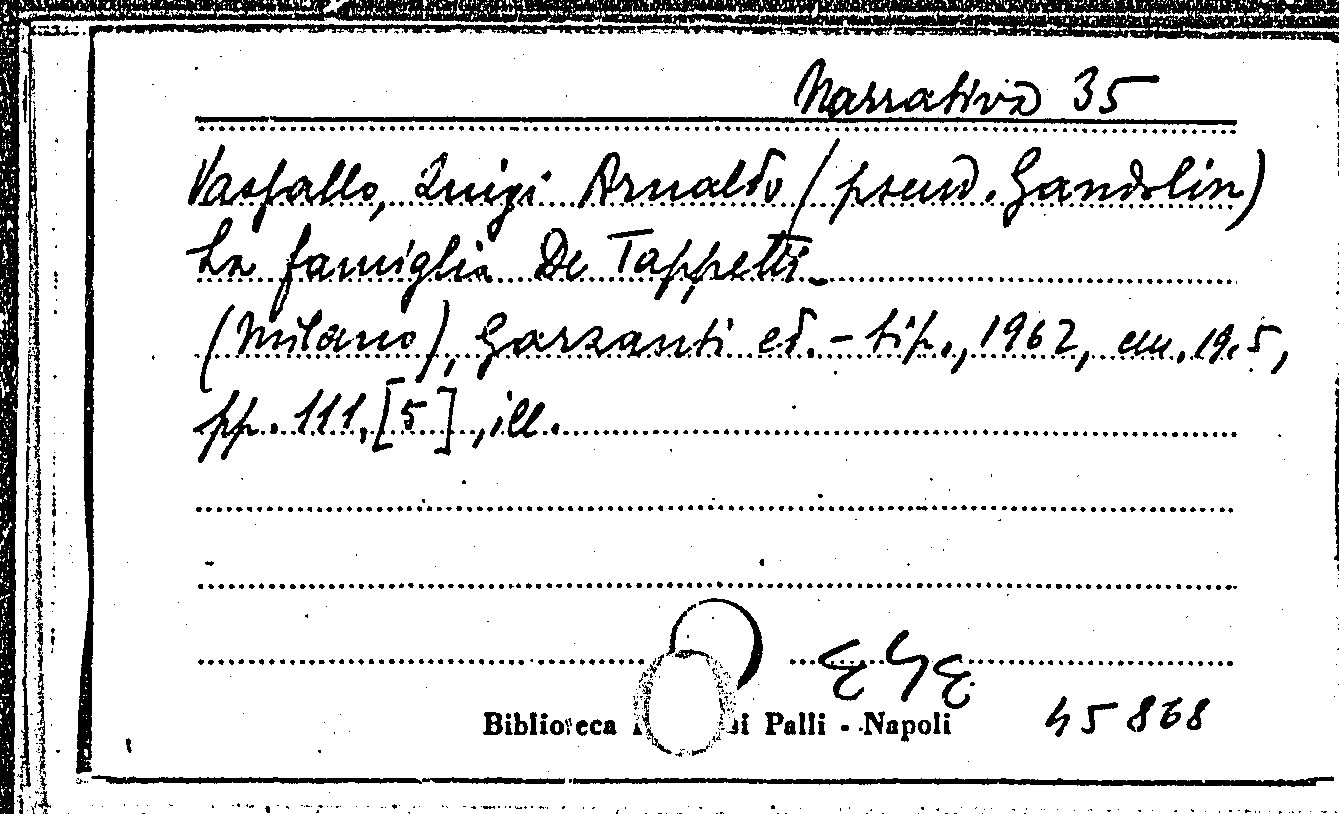 Narrativa 35
Vassallo, Luigi Arnaldo (pseud. Gandolin)
La famiglia De Tappetti.
(Milano), Garzanti ed. - tip., 1962, cm. 19,5,
pp. 111, [5], ill.
Biblioteca Palli - Napoli
45868